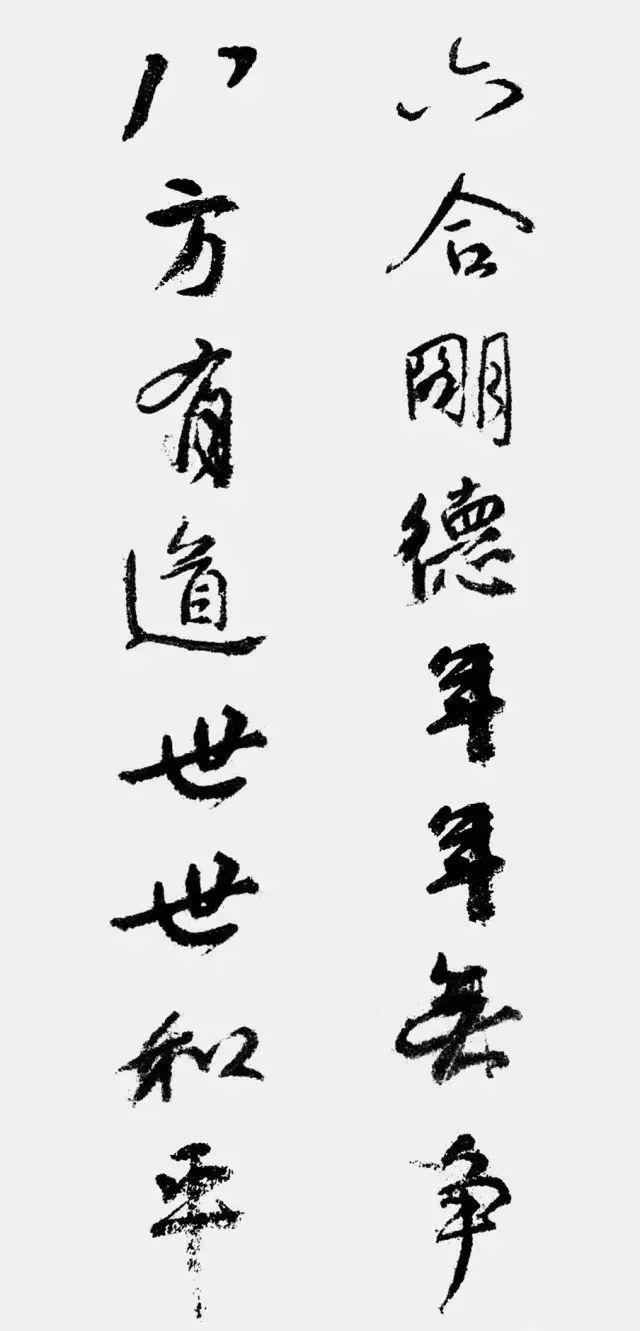 六合朙德年年無争
八方有道世世和平